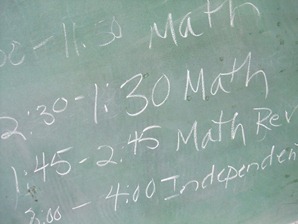 00 - 11:30 Math
2:30 - 1:30 Math
1:45 - 2:45 Math Rev
3:00 - 4:00 Independen